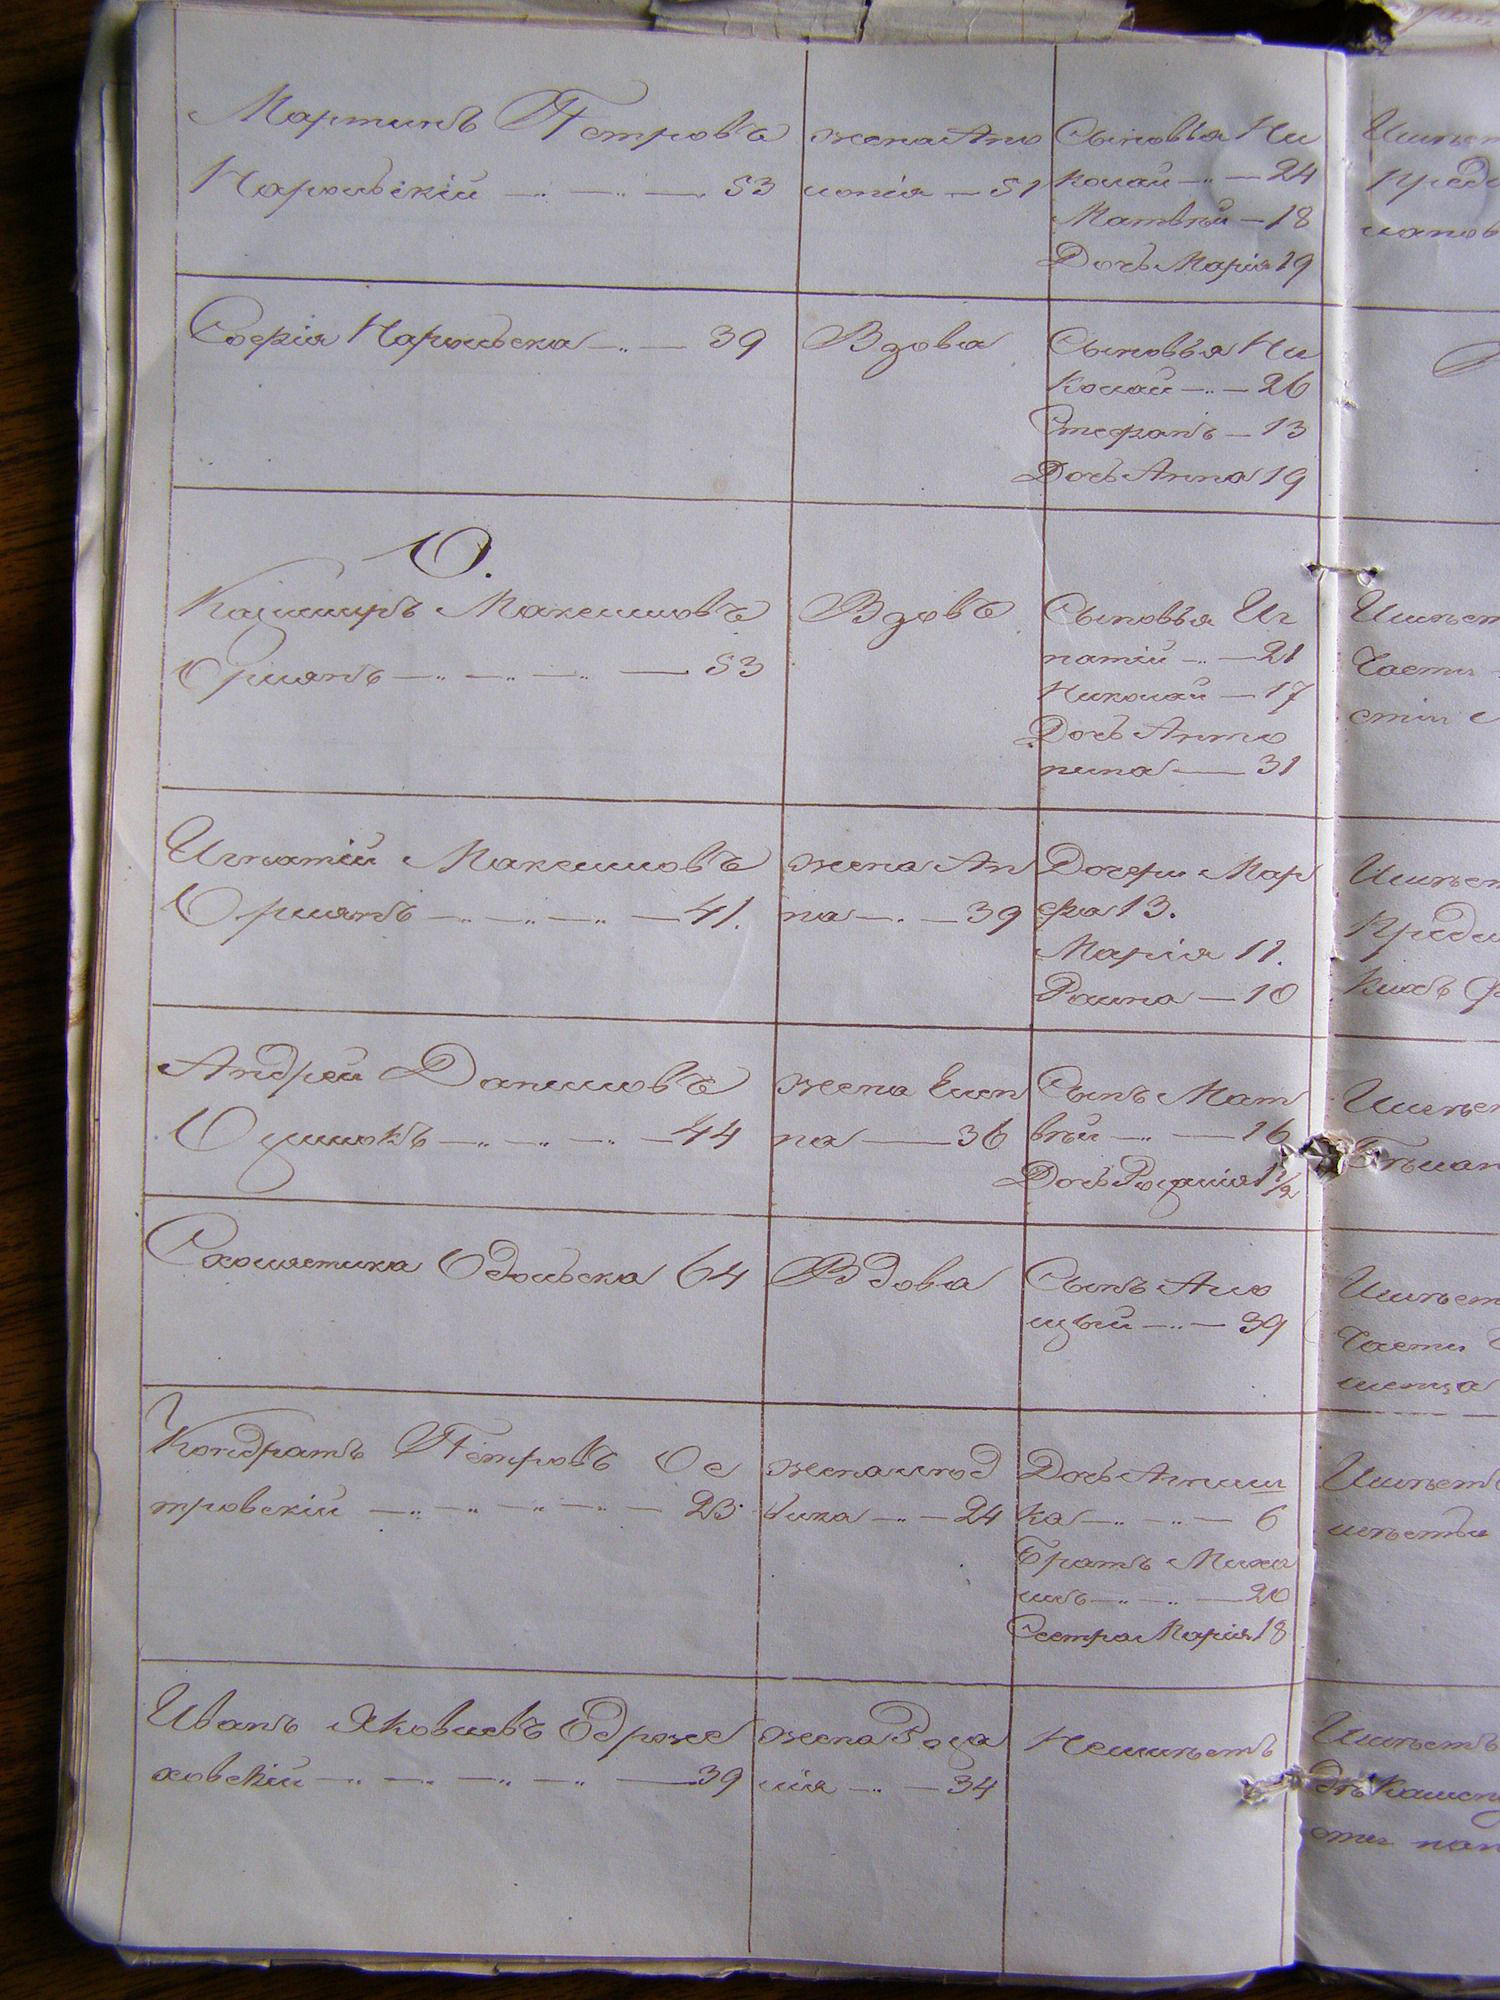 Мартинъ Петровъ
Нарольскій — 53
жена Апо
лонія — 51
Сыновья Ни
колай — 24
Матвѣй — 18
Дочь Марія 19
Имѣет
Софія Нарольска — 39
Вдова
Сыновья Ни
колай — 26
Стефанъ — 13
Дочь Анна 19
О.
Казимиръ Максимовъ
Орлянъ — 53
Вдовъ
Сыновья Иг
натій — 21
Николай — 17
Дочь Анто
нина — 31
Имѣет
части
Игнатій Максимовъ
Орлянъ — 41.
жена Ан
на — 39
Дочери Мар
фа 13.
Марія 11.
Раина — 10
Имѣет
Андрей Даниловъ
Озимокъ — 44
жена Елен
на — 36
Сынъ Мат
вѣй — 16
Дочь Розалія 1 1/2
Имѣет
Схолястика Одольска 64
Вдова
Сынъ Ало
изый — 39
Имѣет
Части
Кондратъ Петровъ Ос
тровскій — 23.
жена Люд
вика — 24
Дочь Анель
ка — 6
Братъ Миха
илъ — 20
Сестра Марія 18
Имѣетъ
Иванъ Яковлевъ Одроже
ховскій — 39
жена Роза
лія — 34
Неимѣетъ
Имѣетъ